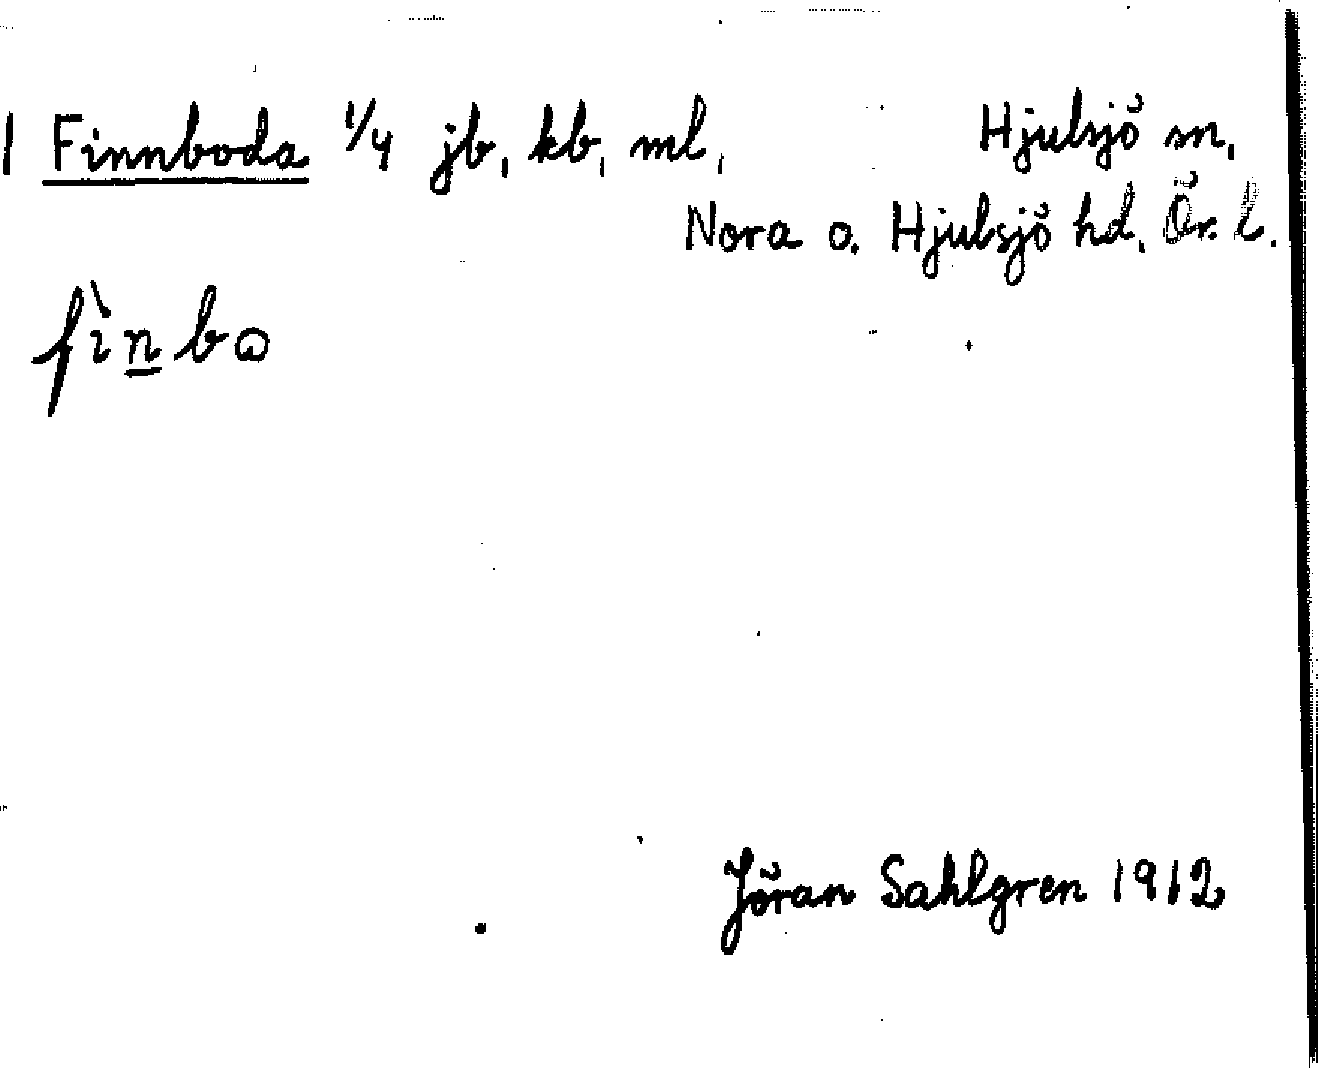 1 Finnboda 1/4 jb, kb, ml, Hjulsjö sn,
Nora o. Hjulsjö hd, Ör. l.
fìn̲bo
Jöran Sahlgren 1912